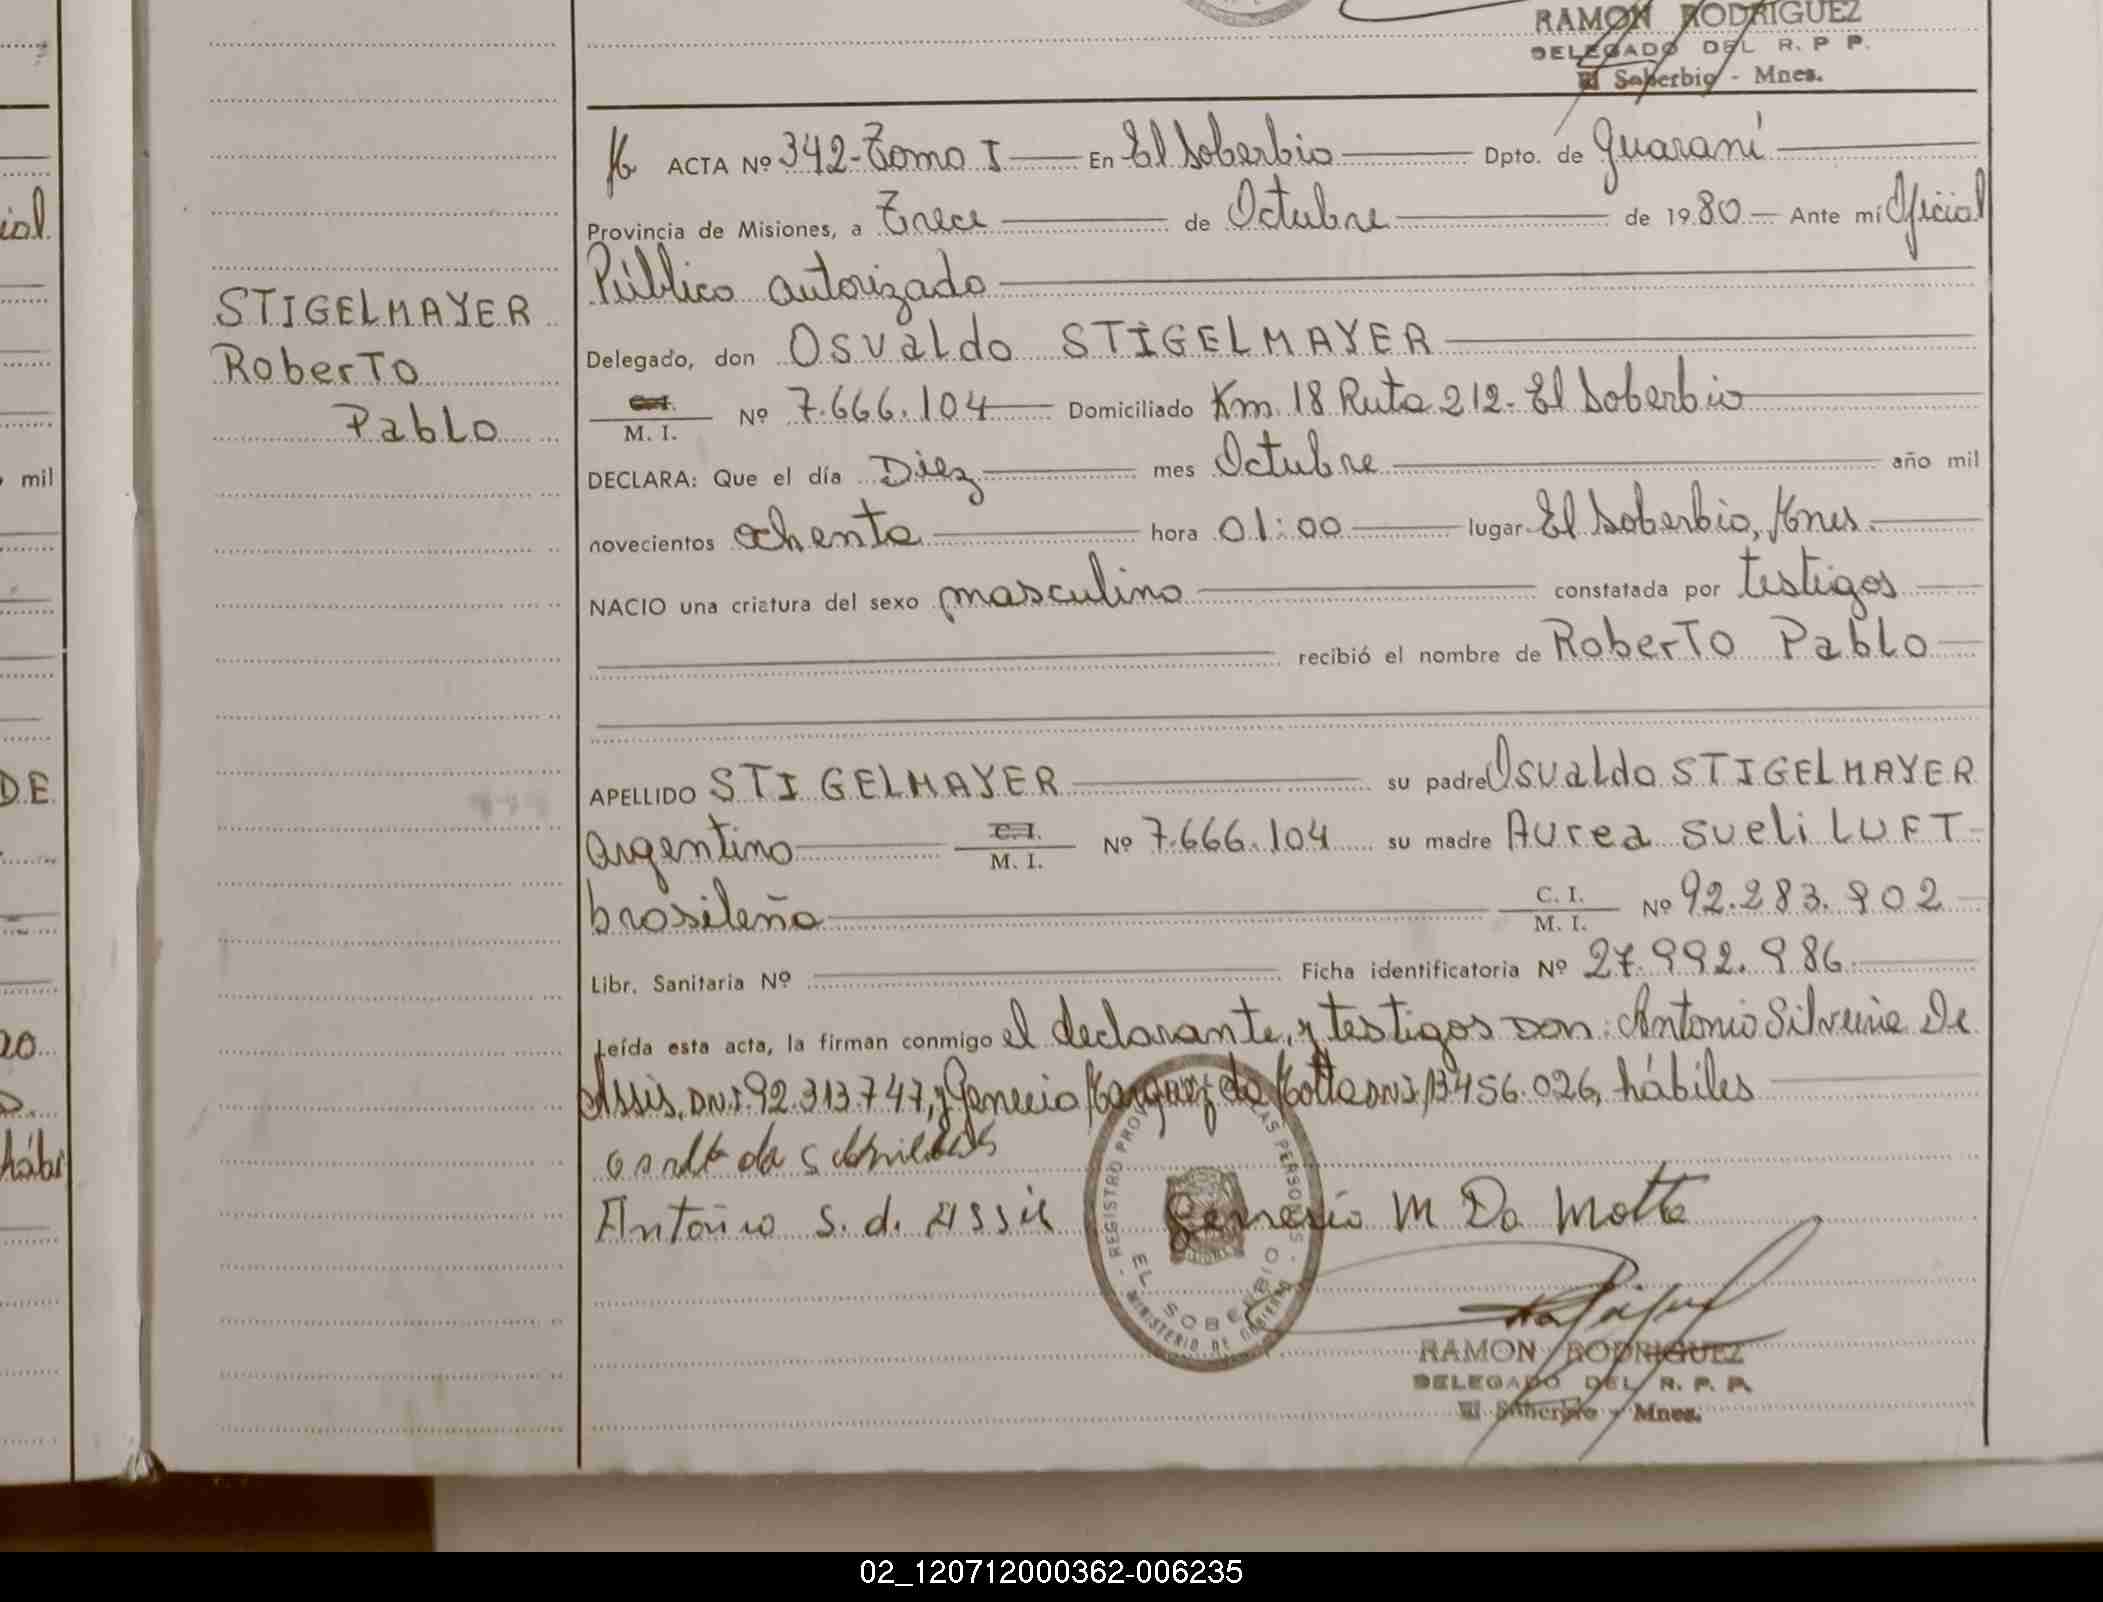 RAMON RODRIGUEZ
DELEGADO DEL R. P P.
El Soberbio - Mnes.
ial
mil
DE
20
hábi
STIGELMAYER
Roberto
Pablo
ACTA Nº 342-Tomo I En El Soberbio Dpto. de Guaraní
Provincia de Misiones, a Trece de Octubre de 1980 Ante mí Oficial
Público autorizado
Delegado, don Osvaldo STIGELMAYER
C.I. M. I. Nº 7.666.104 Domiciliado Km 18 Ruta 212- El Soberbio
DECLARA: Que el día Diez mes Octubre año mil
novecientos ochenta hora 01:00 lugar El Soberbio, Mnes.
NACIO una criatura del sexo masculino constatada por testigos
recibió el nombre de Roberto Pablo
APELLIDO STIGELMAYER su padre Osvaldo STIGELMAYER
argentino C.I. M. I. Nº 7.666.104 su madre Aurea sueli LUFT
brasileña C. I. M. I. Nº 92.283.902
Libr. Sanitaria Nº Ficha identificatoria Nº 27.992.986
Leída esta acta, la firman conmigo el declarante, y testigos Don: Antonio Silveira De
Assis, DNI 92.313.747, y Genecio Marquez da Motta DNI 13456.026, hábiles
Antonio s. d. Assis Genesio M Da Motta
REGISTRO PROV. DE LAS PERSONAS
EL SOBERBIO
MINISTERIO DE GOBIERNO
RAMON RODRIGUEZ
DELEGADO DEL R. P. P.
El Soberbio - Mnes.
02_120712000362-006235